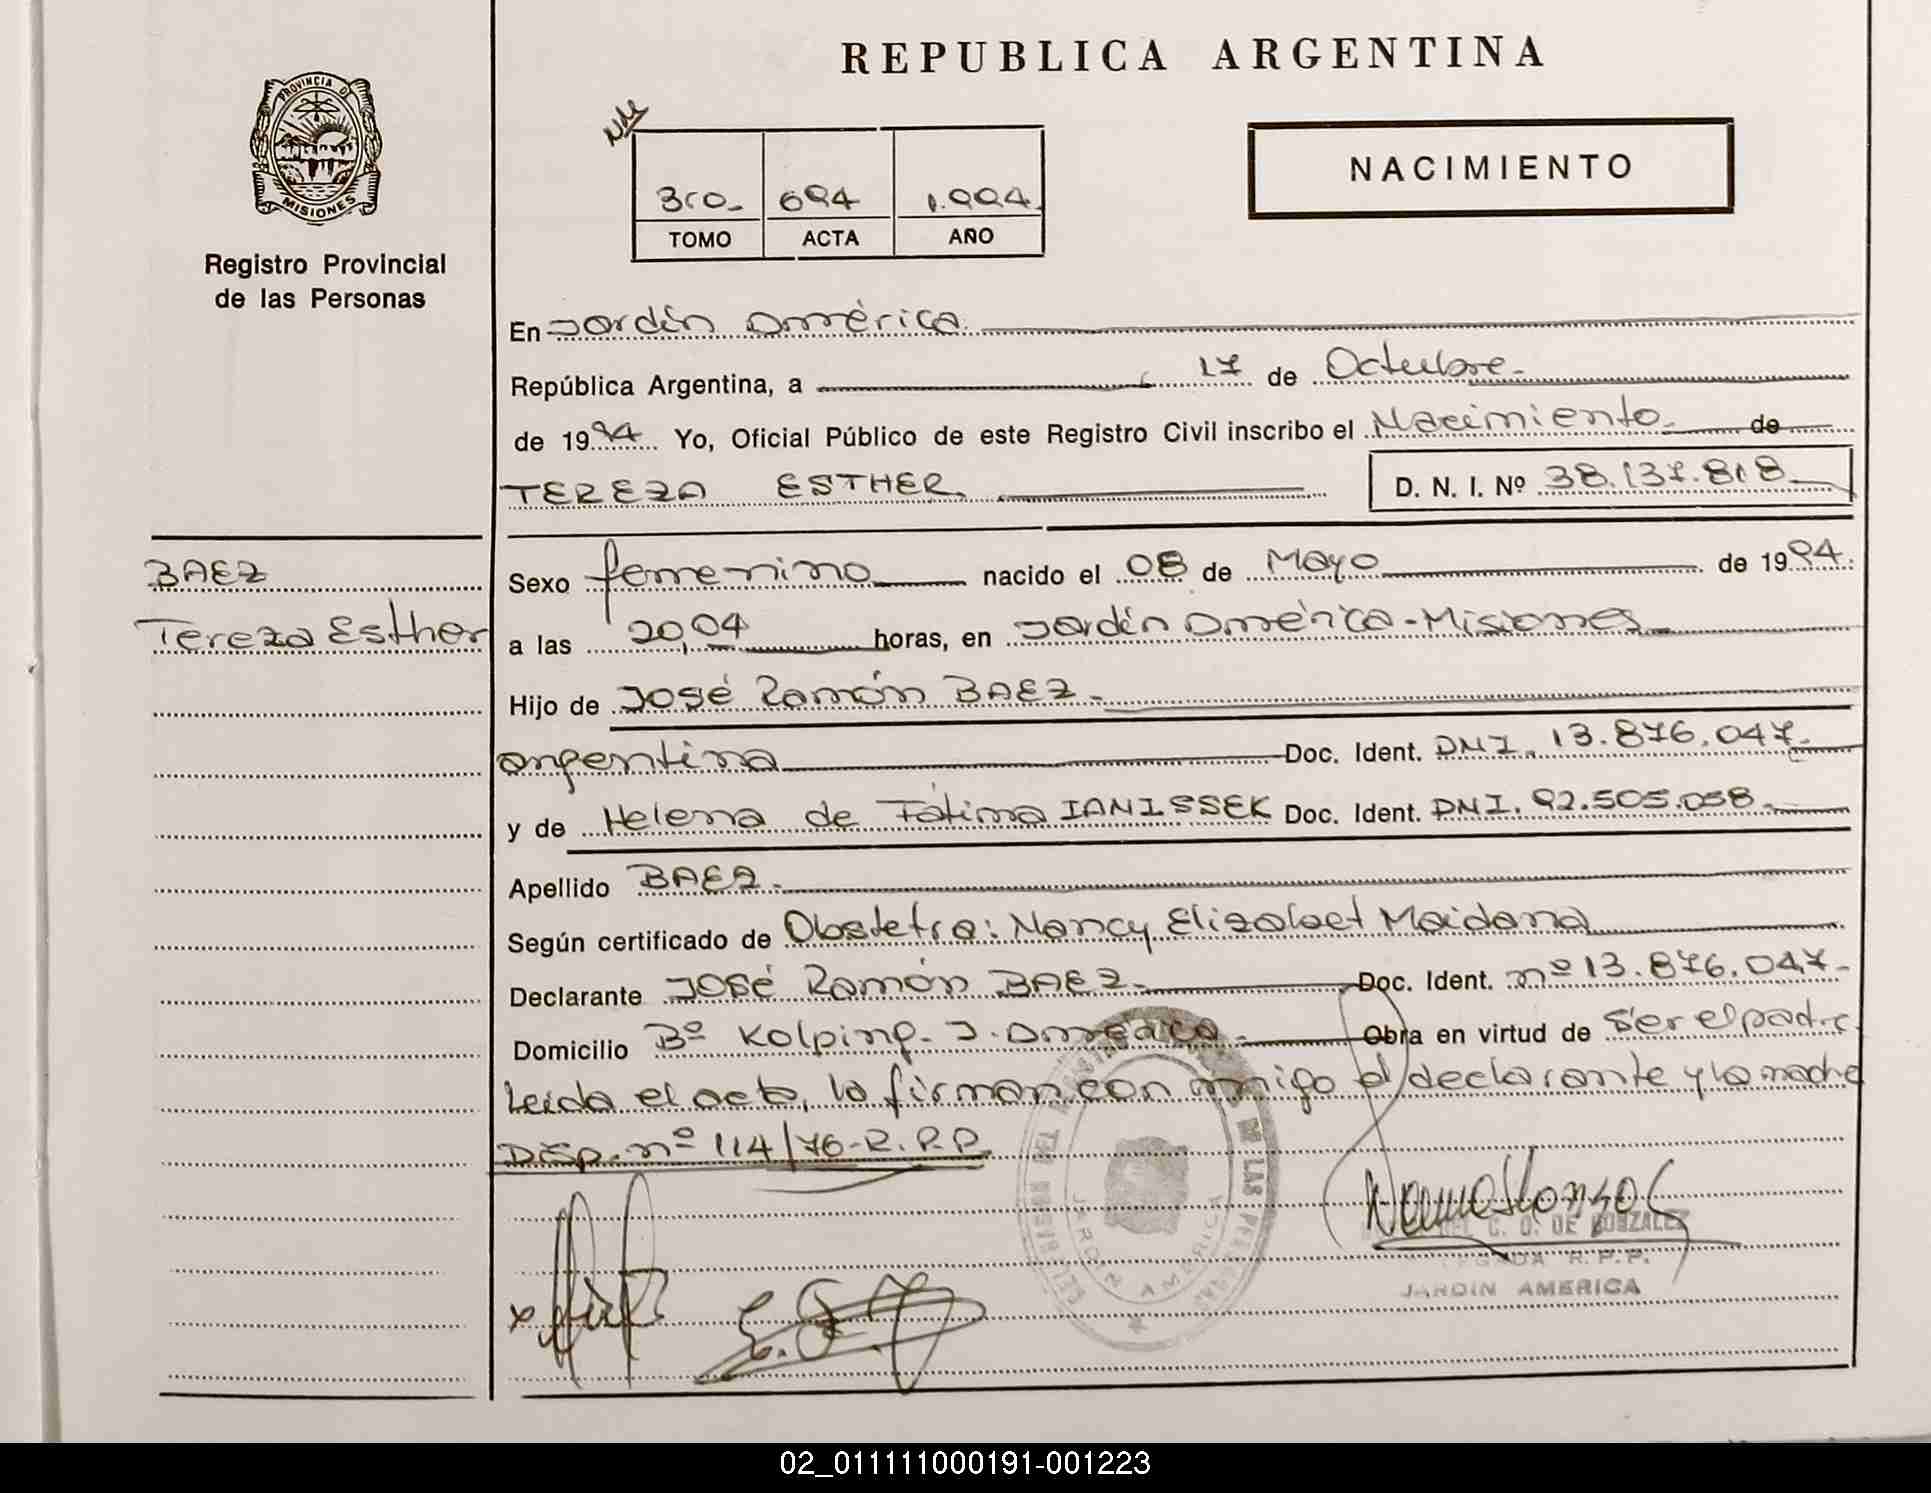 REPUBLICA ARGENTINA
PROVINCIA DE
MISIONES
Registro Provincial
de las Personas
3ro. 694 1.994
TOMO ACTA AÑO
NACIMIENTO
En Jardín América
República Argentina, a 17 de Octubre
de 1994 Yo, Oficial Público de este Registro Civil inscribo el Nacimiento de
TEREZA ESTHER. D. N. I. Nº 38.137.818
BAEZ
Tereza Esther
Sexo femenino nacido el 08 de Mayo de 1994.
a las 20,04 horas, en Jardín América-Misiones
Hijo de José Ramón BAEZ
argentina Doc. Ident. DNI. 13.876.047
y de Helena de Fátima IANISSEK Doc. Ident. DNI. 92.505.058
Apellido BAEZ
Según certificado de Obstetra: Nancy Elizabet Maidana
Declarante José Ramón BAEZ Doc. Ident. nº 13.876.047
Domicilio Bº Kolping. J. América Obra en virtud de ser el padre
Leida el acta, la firman con migo el declarante y la madre
Disp. nº 114/76-R.P.P.
JARDIN AMERICA
C. O. DE GONZALEZ
R.P.P.
JARDIN AMERICA
02_011111000191-001223